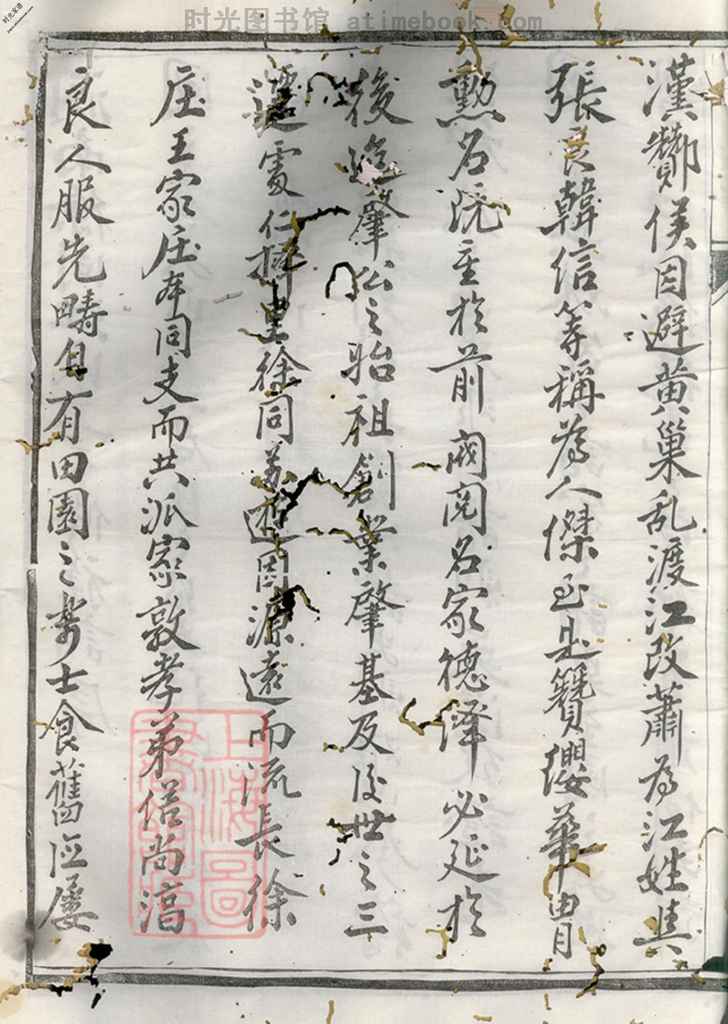 时光图书馆 atimebook.com
漢酇侯因避黄巢乱渡江改蕭為江姓其
張良韓信等稱為人傑至是簪纓華冑
勲名既重於前閥閱名家德澤必延於
後進肇公之貽祖創業肇基及後世之三
遷處仁擇里徐同派遊因源遠而流長徐
庄王家庄本同支而共派家敦孝弟俗尚淳
良人服先疇自有田園之樂士食舊
上海圖